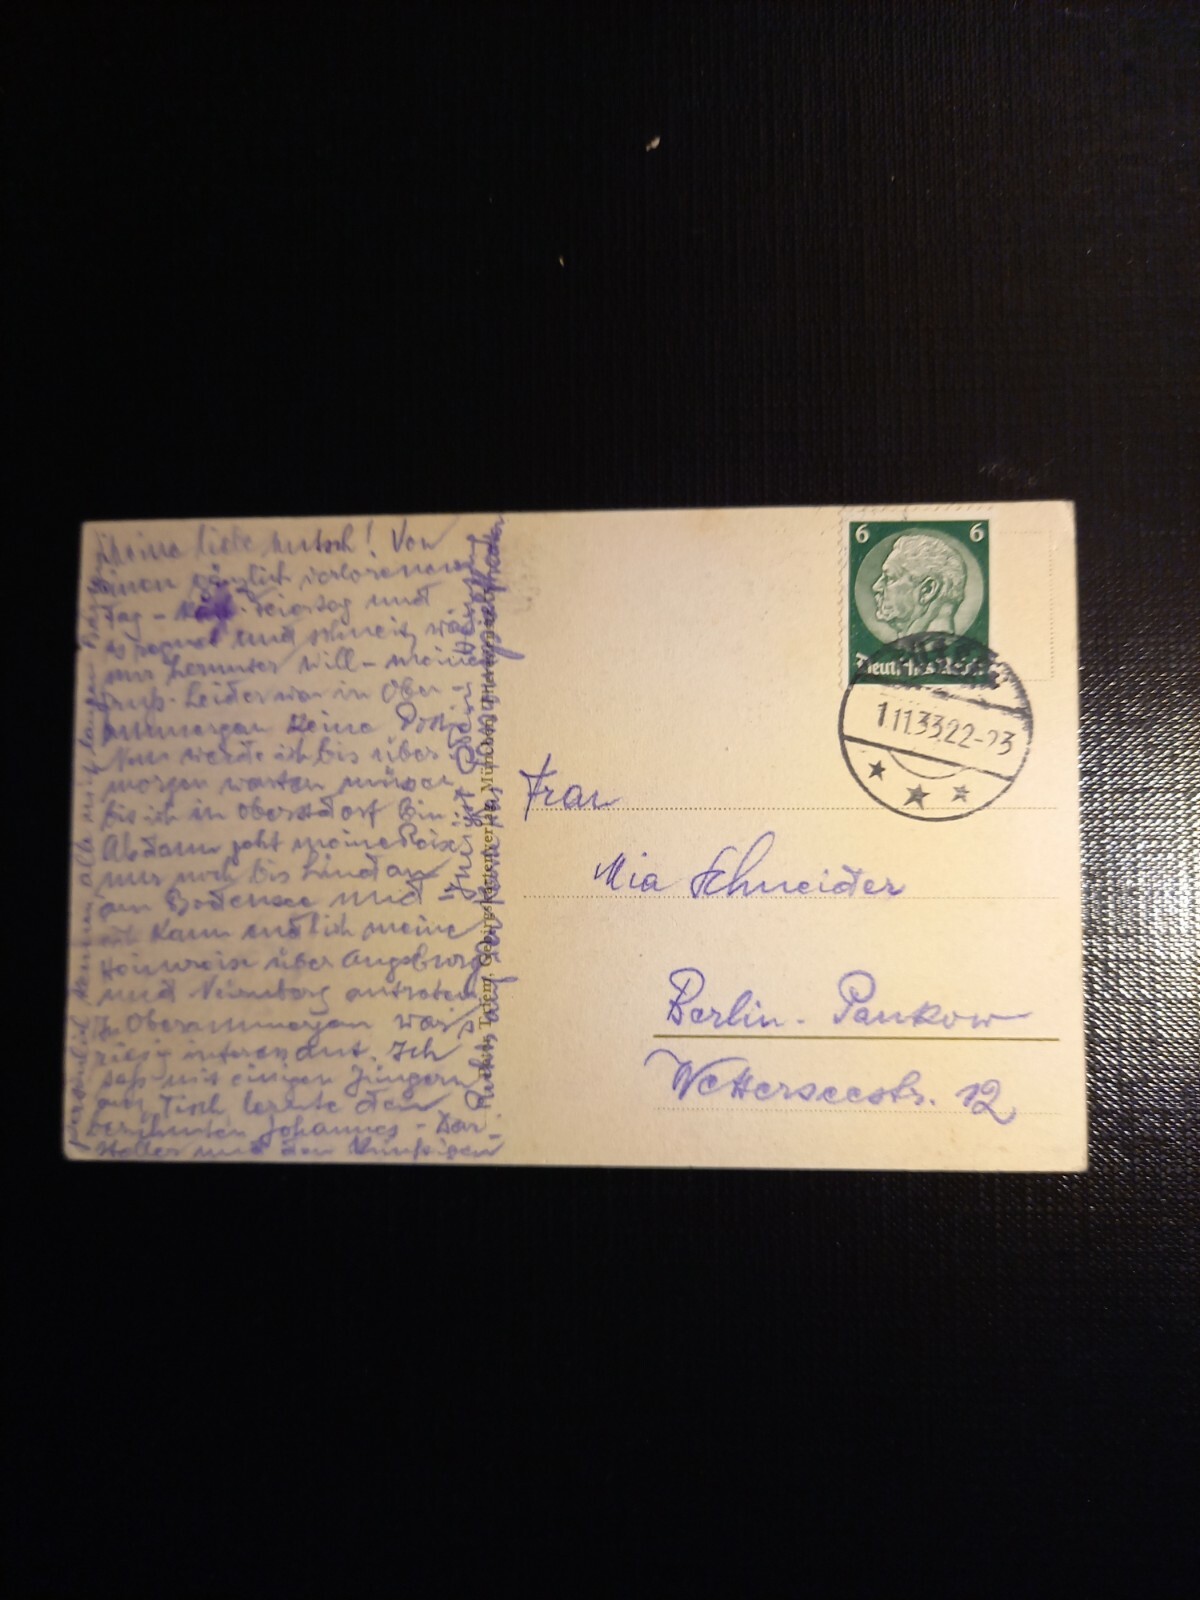 Meine liebe Mutsch! Von
einem gänzlich verlorenem
Tag - Feiertag und
es regnet und schneit, was
nur herunter will - meinen
Gruß. Leider war in Ober-
ammergau keine Post
Nun werde ich bis über-
morgen warten müssen
bis ich in Oberstdorf bin.
Ab dann geht meine Reise
nur noch bis Lindau
am Bodensee und
kann endlich meine
Heimreise über Augsburg
und Nürnberg antreten.
In Oberammergau war's
riesig interessant. Ich
saß mit einigen Jüngern
am Tisch lernte den
berühmten Johannes - Dar-
steller und den
persönlich kennen, alle mit langen
Innigst Dein
6 6
Deutsches Reich
1 11.33.22-23
Frau
Mia Schneider
Berlin - Pankow
Wetterseestr. 12
Gebirgskartenverlag, München